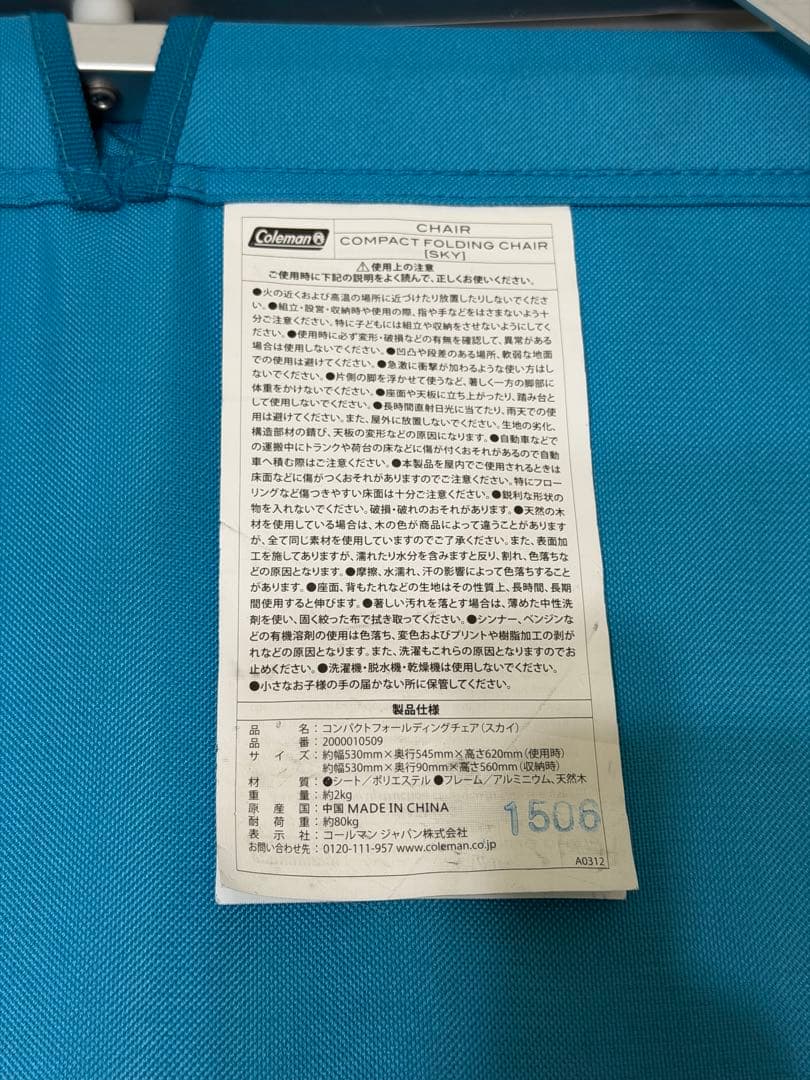 Coleman
CHAIR
COMPACT FOLDING CHAIR
[SKY]
⚠使用上の注意
ご使用時に下記の説明をよく読んで、正しくお使いください。
●火の近くおよび高温の場所に近づけたり放置したりしないでくださ
い。●組立・設営・収納時や使用の際、指や手などをはさまないよう十
分ご注意ください。特に子どもには組立や収納をさせないようにしてく
ださい。●使用時に必ず変形・破損などの有無を確認して、異常がある
場合は使用しないでください。●凹凸や段差のある場所、軟弱な地面
での使用は避けてください。●急激に衝撃が加わるような使い方はし
ないでください。●片側の脚を浮かせて使うなど、著しく一方の脚部に
体重をかけないでください。●座面や天板に立ち上がったり、踏み台と
して使用しないでください。●長時間直射日光に当てたり、雨天での使
用は避けてください。また、屋外に放置しないでください。生地の劣化、
構造部材の錆び、天板の変形などの原因になります。●自動車などで
の運搬中にトランクや荷台の床などに傷が付くおそれがあるので自動
車へ積む際はご注意ください。●本製品を屋内でご使用されるときは
床面などに傷がつくおそれがありますのでご注意ください。特にフロー
リングなど傷つきやすい床面は十分ご注意ください。●鋭利な形状の
物を入れないでください。破損・破れのおそれがあります。●天然の木
材を使用している場合は、木の色が商品によって違うことがあります
が、全て同じ素材を使用していますのでご了承ください。また、表面加
工を施してありますが、濡れたり水分を含みますと反り、割れ、色落ちな
どの原因となります。●摩擦、水濡れ、汗の影響によって色落ちすること
があります。●座面、背もたれなどの生地はその性質上、長時間、長期
間使用すると伸びます。●著しい汚れを落とす場合は、薄めた中性洗
剤を使い、固く絞った布で拭き取ってください。●シンナー、ベンジンな
どの有機溶剤の使用は色落ち、変色およびプリントや樹脂加工の剥が
れなどの原因となります。また、洗濯もこれらの原因となりますのでお
止めください。●洗濯機・脱水機・乾燥機は使用しないでください。
●小さなお子様の手の届かない所に保管してください。
製品仕様
品名：コンパクトフォールディングチェア（スカイ）
品番：2000010509
サイズ：約幅530mm×奥行545mm×高さ620mm（使用時）
約幅530mm×奥行90mm×高さ560mm（収納時）
材質：●シート／ポリエステル ●フレーム／アルミニウム、天然木
重量：約2kg
原産国：中国 MADE IN CHINA
耐荷重：約80kg
表示社：コールマン ジャパン株式会社
お問い合わせ先：0120-111-957 www.coleman.co.jp
1506
A0312